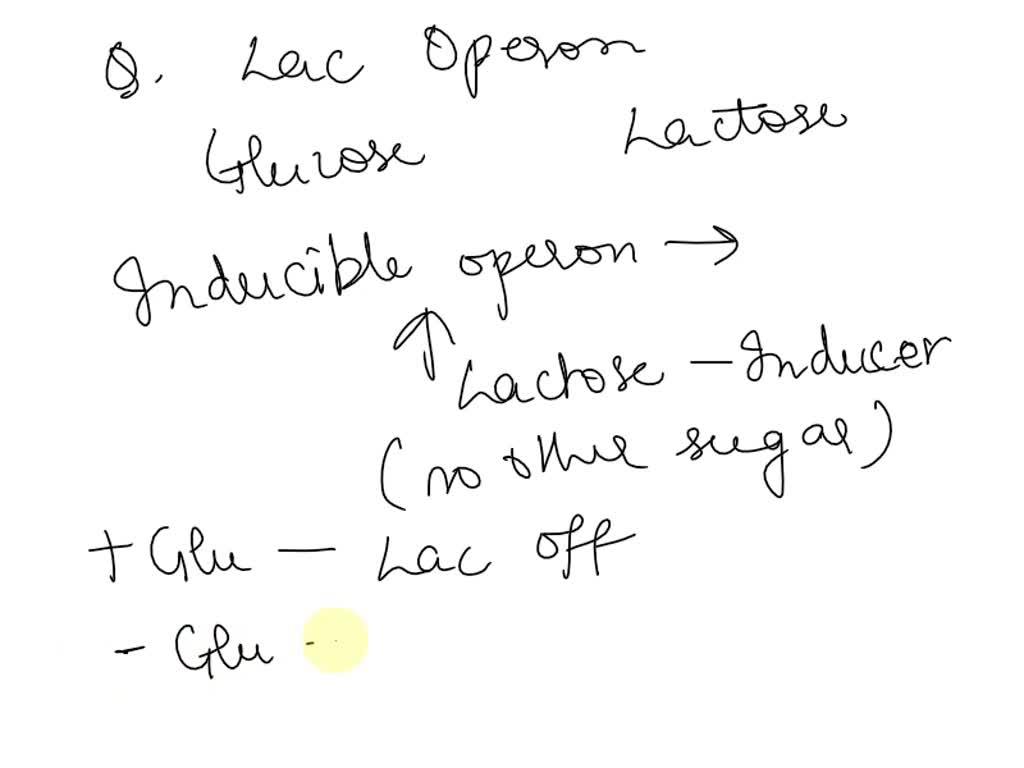 Q. Lac Operon
Glucose Lactose
Inducible operon →
↑ Lactose – Inducer
(no other sugar)
+ Glu — Lac off
- Glu -